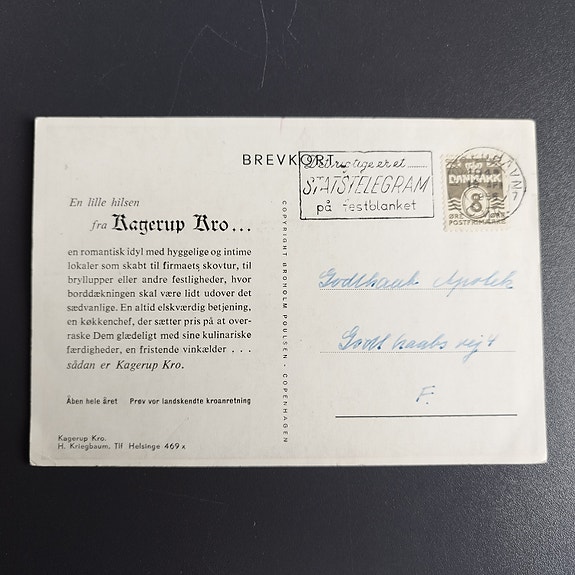 BREVKORT
En lille hilsen
fra Kagerup Kro...
en romantisk idyl med hyggelige og intime
lokaler som skabt til firmaets skovtur, til
bryllupper eller andre festligheder, hvor
borddækningen skal være lidt udover det
sædvanlige. En altid elskværdig betjening,
en køkkenchef, der sætter pris på at over-
raske Dem glædeligt med sine kulinariske
færdigheder, en fristende vinkælder . . .
sådan er Kagerup Kro.
Åben hele året Prøv vor landskendte kroanretning
Kagerup Kro.
H. Kriegbaum. Tlf Helsinge 469 x
COPYRIGHT BROHOLM POULSEN - COPENHAGEN
Det rigtige er et
STATSTELEGRAM
på festblanket
DANMARK
8
ØRE ØRE
POSTFRIMÆRKE
Godthaab Apotek
Godthaabs vej 4
F.